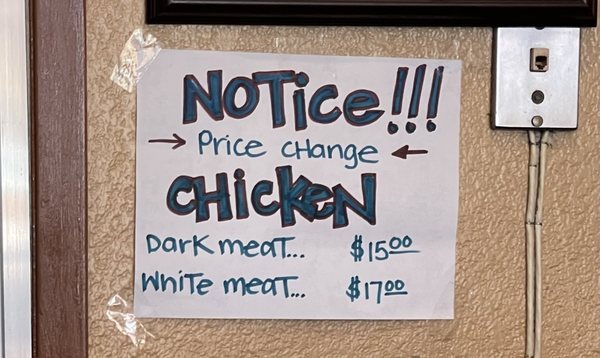 NOTice!!!
→ Price CHange ←
CHicKeN
DarK meaT... $15⁰⁰
WHiTe meaT... $17⁰⁰